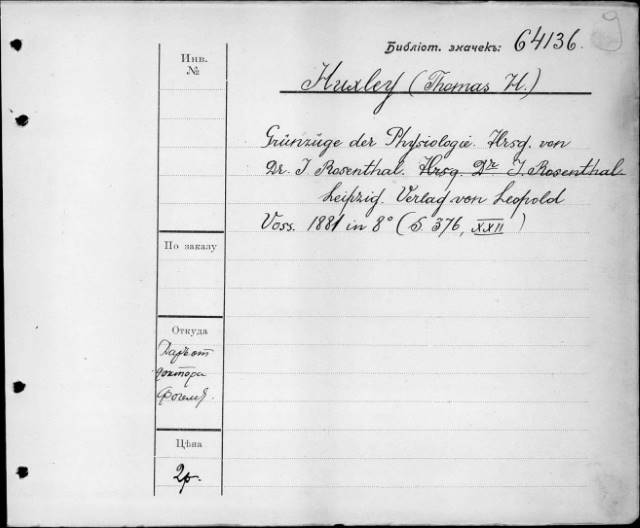 9
Библіот. значекъ: 64136.
Инв.
№
Huxley (Thomas H.)
Grünzüge der Physiologie. Hrsg. von
Dr. I. Rosenthal. Hrsg. Dr I. Rosenthal.
Leipzig. Verlag von Leopold
Voss. 1881 in 8° (S. 376, XXII)
По заказу
Откуда
Даръ от
доктора
Цѣна
2р.